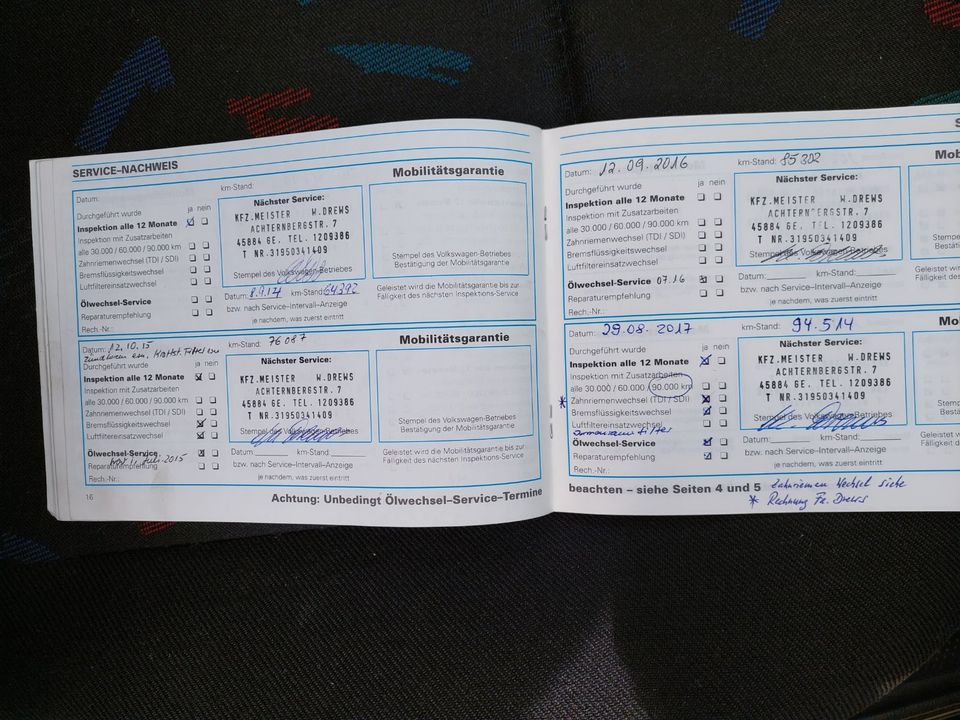 SERVICE–NACHWEIS
Datum:
km-Stand:
Mobilitätsgarantie
Durchgeführt wurde
ja nein
Inspektion alle 12 Monate
Inspektion mit Zusatzarbeiten
alle 30.000 / 60.000 / 90.000 km
Zahnriemenwechsel (TDI / SDI)
Bremsflüssigkeitswechsel
Luftfiltereinsatzwechsel
Ölwechsel-Service
Reparaturempfehlung
Rech.-Nr.:
Nächster Service:
KFZ.MEISTER W.DREWS
ACHTERNBERGSTR. 7
45884 GE. TEL. 1209386
T NR.31950341409
Stempel des Volkswagen-Betriebes
Datum: 8.9.14 km-Stand: 64392
bzw. nach Service–Intervall–Anzeige
je nachdem, was zuerst eintritt
Stempel des Volkswagen-Betriebes
Bestätigung der Mobilitätsgarantie
Geleistet wird die Mobilitätsgarantie bis zur
Fälligkeit des nächsten Inspektions-Service
Datum: 12.10.15
km-Stand: 76087
Mobilitätsgarantie
Durchgeführt wurde
ja nein
Inspektion alle 12 Monate
Inspektion mit Zusatzarbeiten
alle 30.000 / 60.000 / 90.000 km
Zahnriemenwechsel (TDI / SDI)
Bremsflüssigkeitswechsel
Luftfiltereinsatzwechsel
Ölwechsel-Service
Juli 2015
Reparaturempfehlung
Rech.-Nr.:
Nächster Service:
KFZ.MEISTER W.DREWS
ACHTERNBERGSTR. 7
45884 GE. TEL. 1209386
T NR.31950341409
Stempel des Volkswagen-Betriebes
Datum km-Stand:
bzw. nach Service–Intervall–Anzeige
je nachdem, was zuerst eintritt
Stempel des Volkswagen-Betriebes
Bestätigung der Mobilitätsgarantie
Geleistet wird die Mobilitätsgarantie bis zur
Fälligkeit des nächsten Inspektions-Service
16
Achtung: Unbedingt Ölwechsel–Service–Termine
Datum: 12.09.2016
km-Stand: 85302
Durchgeführt wurde
ja nein
Inspektion alle 12 Monate
Inspektion mit Zusatzarbeiten
alle 30.000 / 60.000 / 90.000 km
Zahnriemenwechsel (TDI / SDI)
Bremsflüssigkeitswechsel
Luftfiltereinsatzwechsel
Ölwechsel-Service 07.16
Reparaturempfehlung
Rech.-Nr.:
Nächster Service:
KFZ.MEISTER W.DREWS
ACHTERNBERGSTR. 7
45884 GE. TEL. 1209386
T NR.31950341409
Stempel des Volkswagen-Betriebes
Datum: km-Stand:
bzw. nach Service–Intervall–Anzeige
je nachdem, was zuerst eintritt
Geleistet wird
Fälligkeit des
Datum: 29.08.2017
km-Stand: 94.514
Durchgeführt wurde
ja nein
Inspektion alle 12 Monate
Inspektion mit Zusatzarbeiten
alle 30.000 / 60.000 / 90.000 km
* Zahnriemenwechsel (TDI / SDI)
Bremsflüssigkeitswechsel
Luftfiltereinsatzwechsel
Ölwechsel-Service
Reparaturempfehlung
Rech.-Nr.:
Nächster Service:
KFZ.MEISTER W.DREWS
ACHTERNBERGSTR. 7
45884 GE. TEL. 1209386
T NR.31950341409
Stempel des Volkswagen-Betriebes
Datum: km-Stand:
bzw. nach Service–Intervall–Anzeige
je nachdem, was zuerst eintritt
Geleistet
Fälligkeit
beachten – siehe Seiten 4 und 5
Zahnriemen Wechsel siehe
* Rechnung Fa. Drews